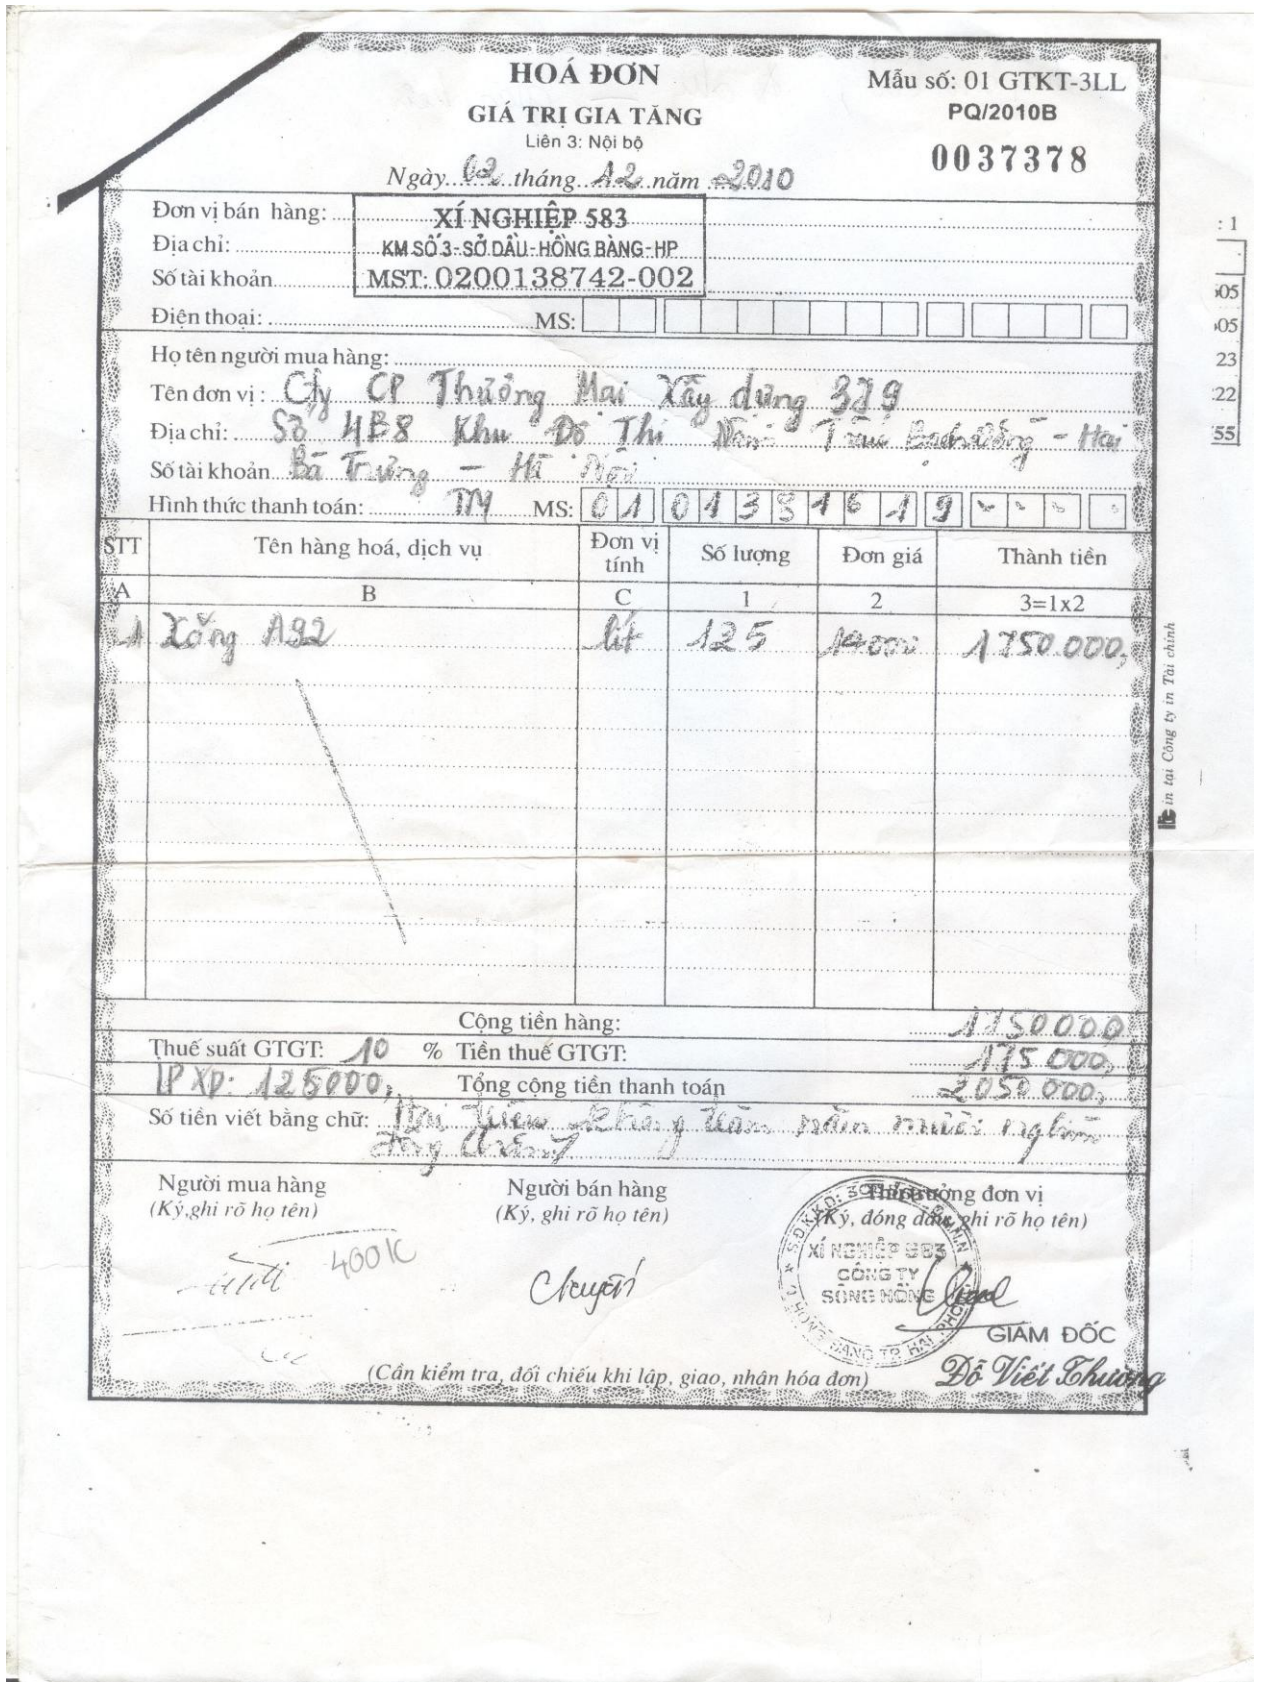 HOÁ ĐƠN
GIÁ TRỊ GIA TĂNG
Liên 3: Nội bộ
Ngày 02 tháng 12 năm 2010
Mẫu số: 01 GTKT-3LL
PQ/2010B
0037378
Đơn vị bán hàng: XÍ NGHIỆP 583
Địa chỉ: KM SỐ 3-SỞ DẦU-HỒNG BÀNG-HP
Số tài khoản MST: 0200138742-002
Điện thoại: MS:
Họ tên người mua hàng:
Tên đơn vị: Cty CP Thương Mại Xây dựng 379
Địa chỉ: Số 4B8 Khu Đô Thị - Hai
Số tài khoản Bà Trưng - Hà Nội
Hình thức thanh toán: TM MS: 01 01
STT Tên hàng hoá, dịch vụ Đơn vị tính Số lượng Đơn giá Thành tiền
A B C 1 2 3=1x2
1 Xăng A92 lít 125 14000 1750.000,
Cộng tiền hàng: 1750000
Thuế suất GTGT: 10 % Tiền thuế GTGT: 175 000,
LP XD: 125000, Tổng cộng tiền thanh toán 2050 000,
Số tiền viết bằng chữ: Hai triệu không trăm năm mươi nghìn
đồng chẵn
Người mua hàng Người bán hàng Thủ trưởng đơn vị
(Ký,ghi rõ họ tên) (Ký, ghi rõ họ tên) (Ký, đóng dấu, ghi rõ họ tên)
XÍ NGHIỆP 583
CÔNG TY
SÔNG HỒNG
400K
GIÁM ĐỐC
Đỗ Viết Thường
(Cần kiểm tra, đối chiếu khi lập, giao, nhận hóa đơn)
in tại Công ty in Tài chính
: 1
23
55